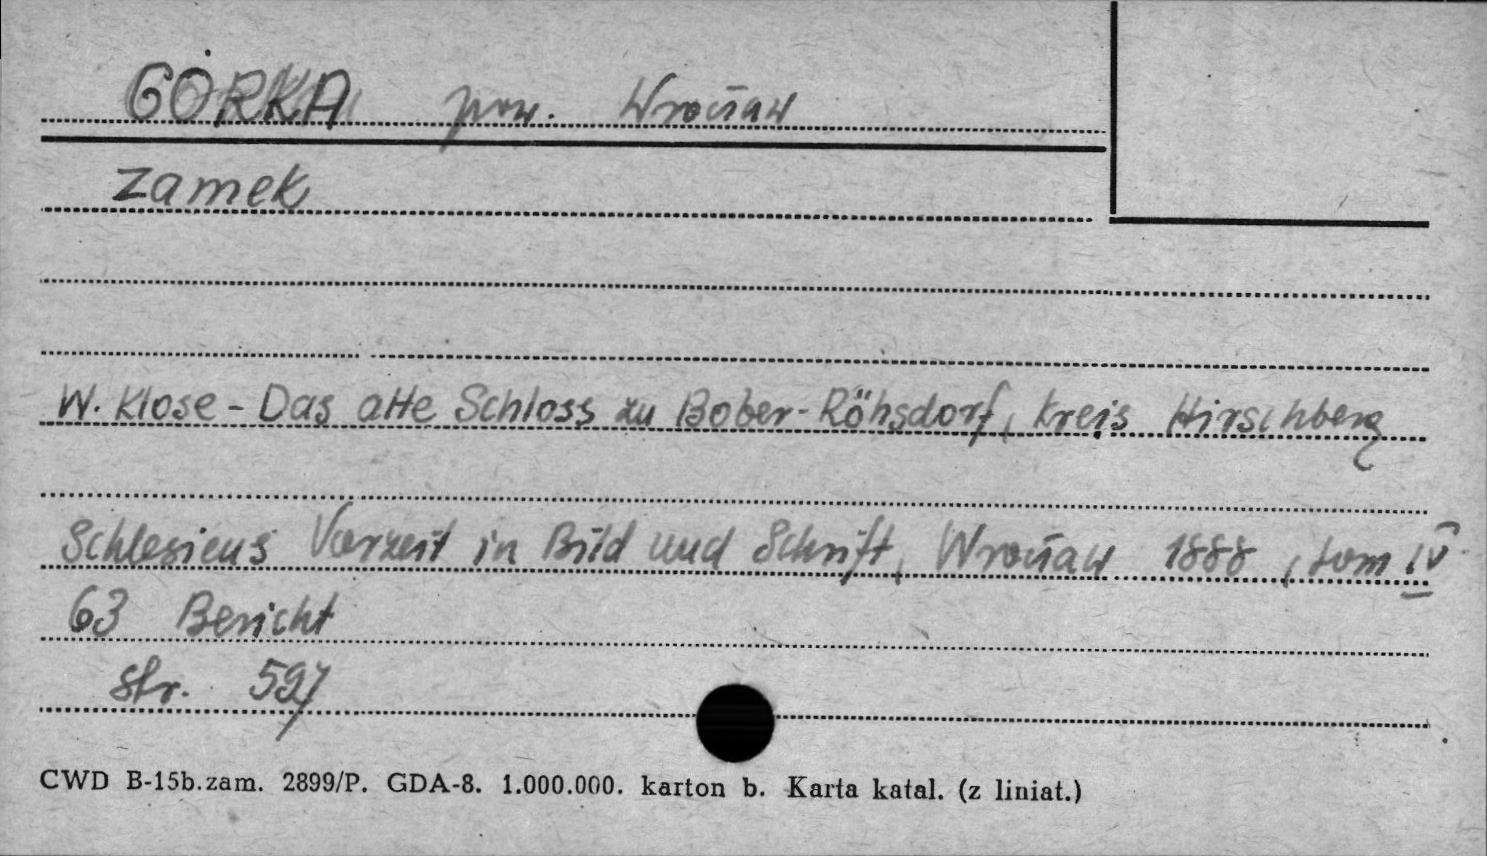 GÓRKA pow. Wrocław
zamek
W. Klose - Das alte Schloss zu Bober-Röhsdorf, Kreis Hirschberg
Schlesiens Vorzeit in Bild und Schrift, Wrocław 1888, tom IV
63 Bericht
str. 597
CWD B-15b.zam. 2899/P. GDA-8. 1.000.000. karton b. Karta katal. (z liniat.)